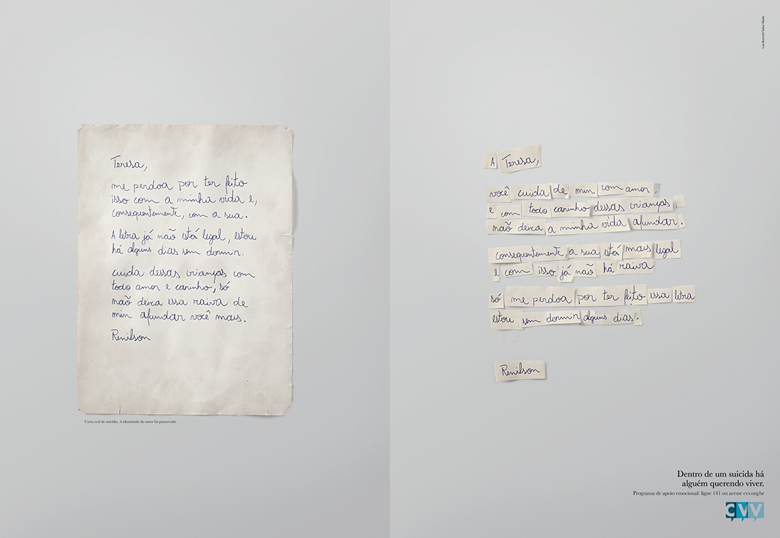 Teresa,
me perdoa por ter feito
isso com a minha vida e,
consequentemente, com a sua.
A letra já não está legal, estou
há alguns dias sem dormir.
cuida dessas crianças com
todo amor e carinho, só
não deixa essa raiva de
mim afundar você mais.
Renilson
Carta real de suicídio. A identidade do autor foi preservada.
A Teresa,
você cuida de mim com amor.
e com todo carinho dessas crianças,
não deixa a minha vida afundar.
consequentemente a sua está mais legal
e com isso já não há raiva
só me perdoa por ter feito essa letra
estou sem dormir alguns dias.
Renilson
Dentro de um suicida há
alguém querendo viver.
Programa de apoio emocional: ligue 141 ou acesse cvv.org.br
CVV